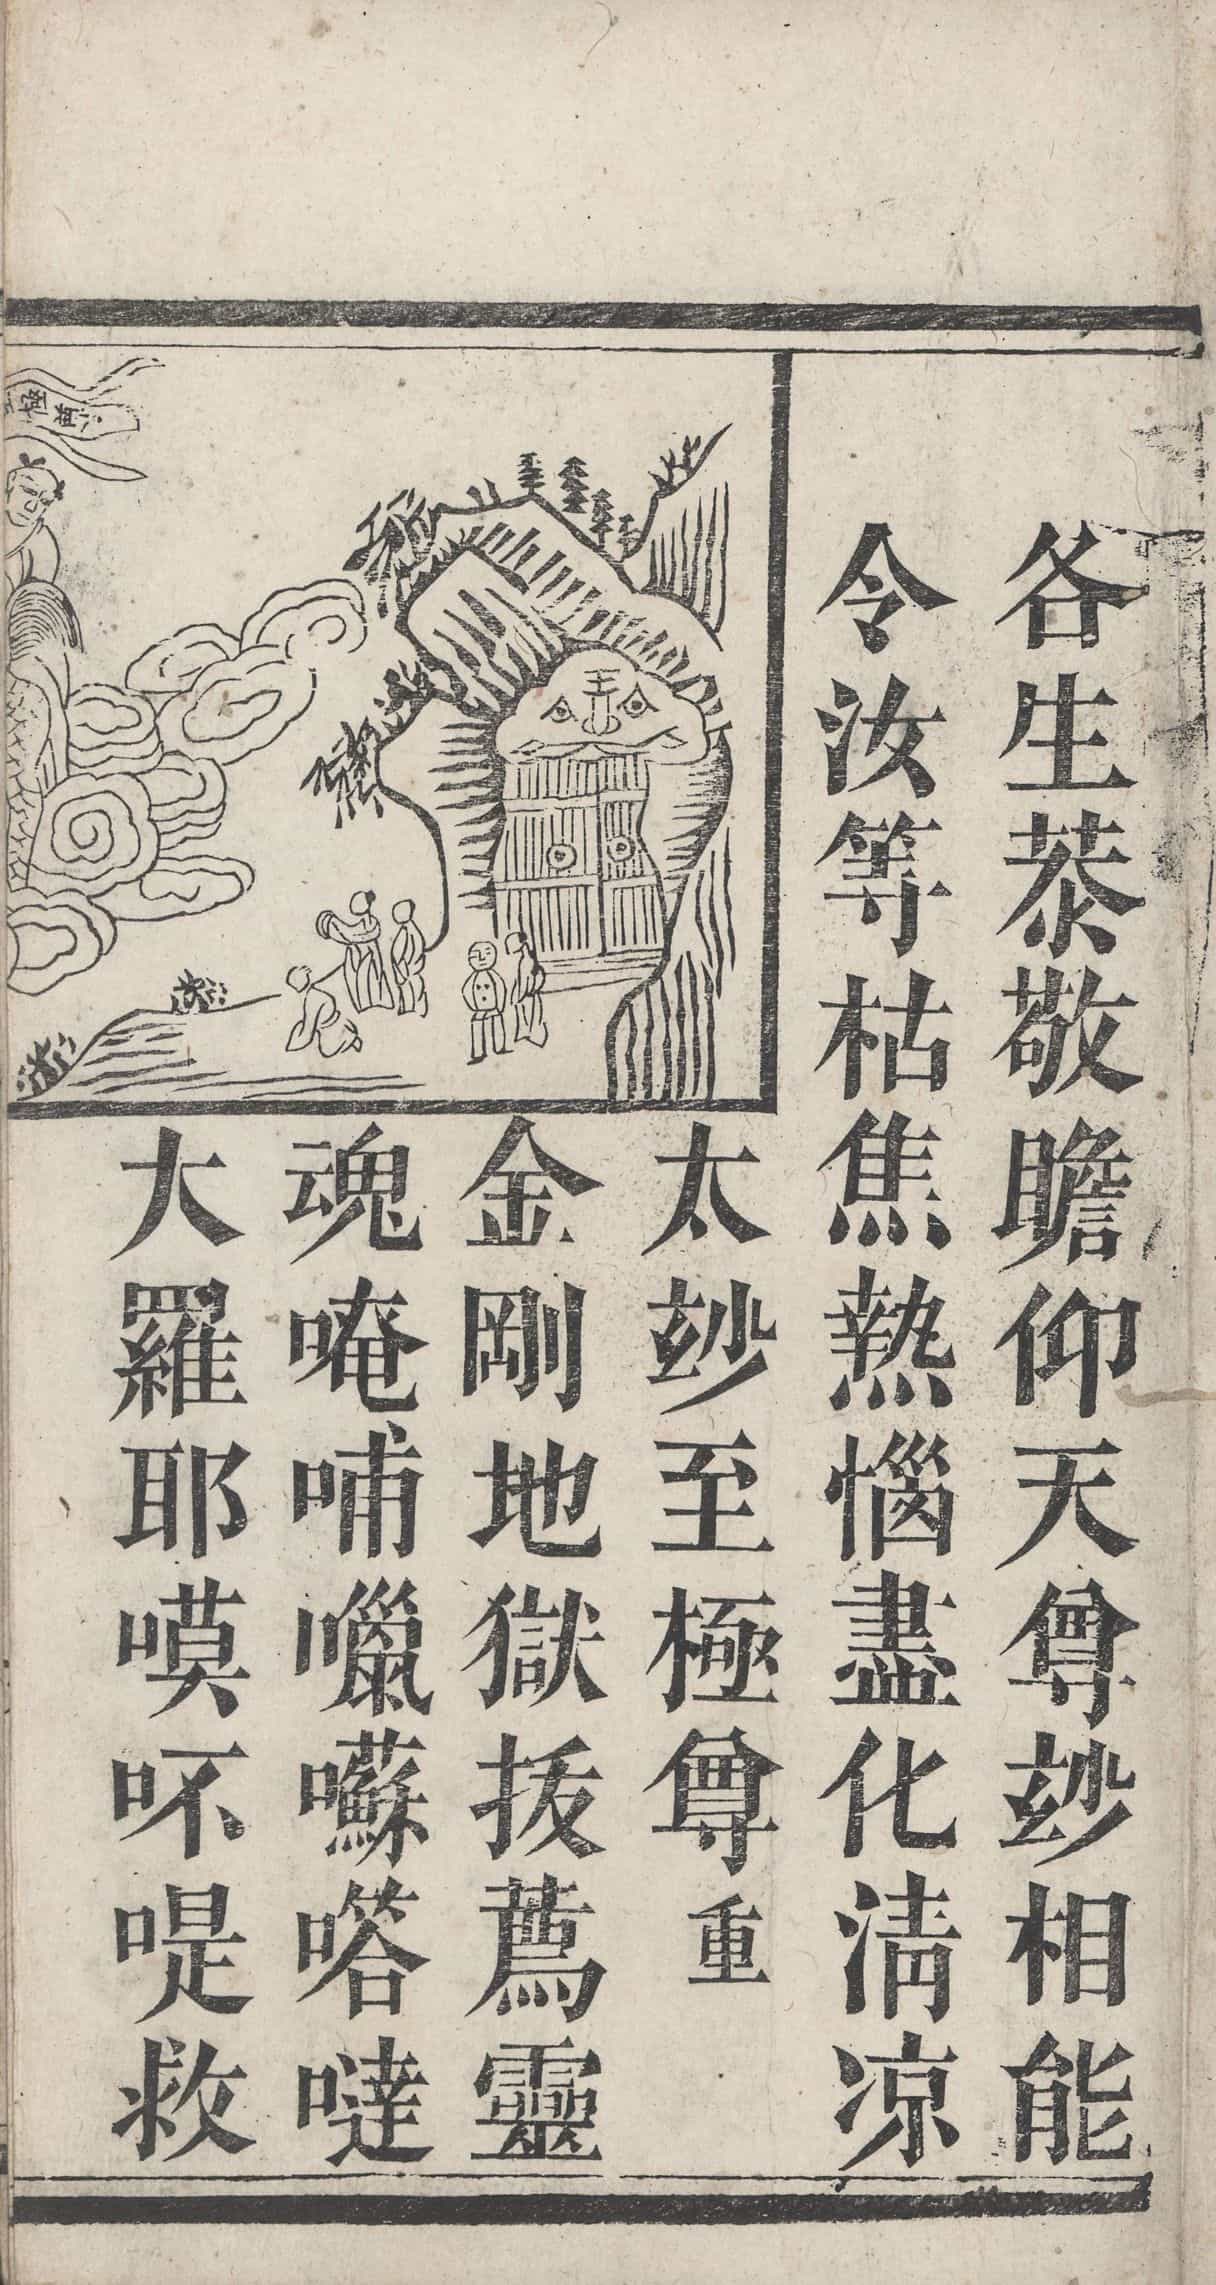 各生㳟敬瞻仰天尊玅相能
令汝等枯焦熱惱盡化清凉
太玅至極尊重
金剛地獄拔薦靈
魂唵哺囒囌嗒噠
大羅耶嘆吥㖷救
王